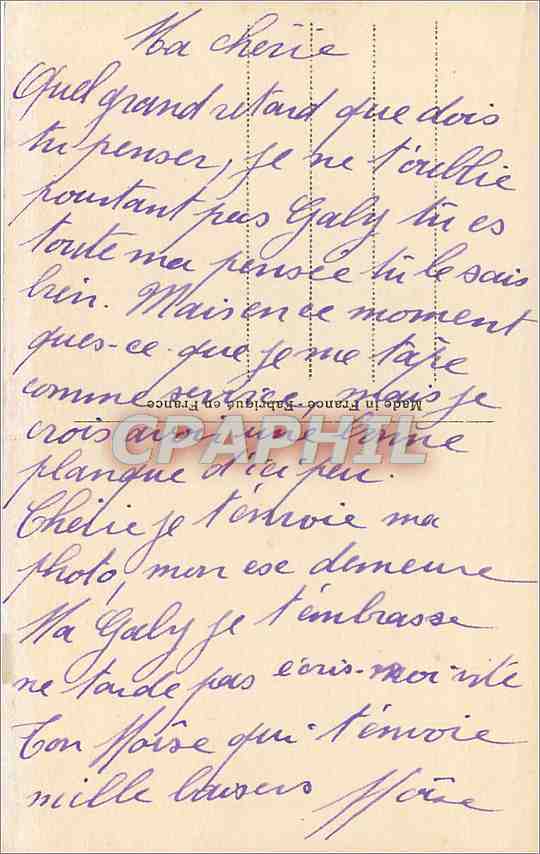 Ma chérie
Quel grand retard que dois
tu penser, je ne t'oublie
pourtant pas Galy tu es
toute ma pensée tu le sais
bien. Mais en ce moment
ques-ce que je me tape
comme service, mais je
Made in France - Fabriqué en France
crois avoir une bonne
CPAPHIL
planque d'ici peu.
Chérie je t'envoie ma
photo, mon ex demeure
Ma Galy je t'embrasse
ne tarde pas écris-moi vite
Ton Moïse qui t'envoie
mille baisers Moïse